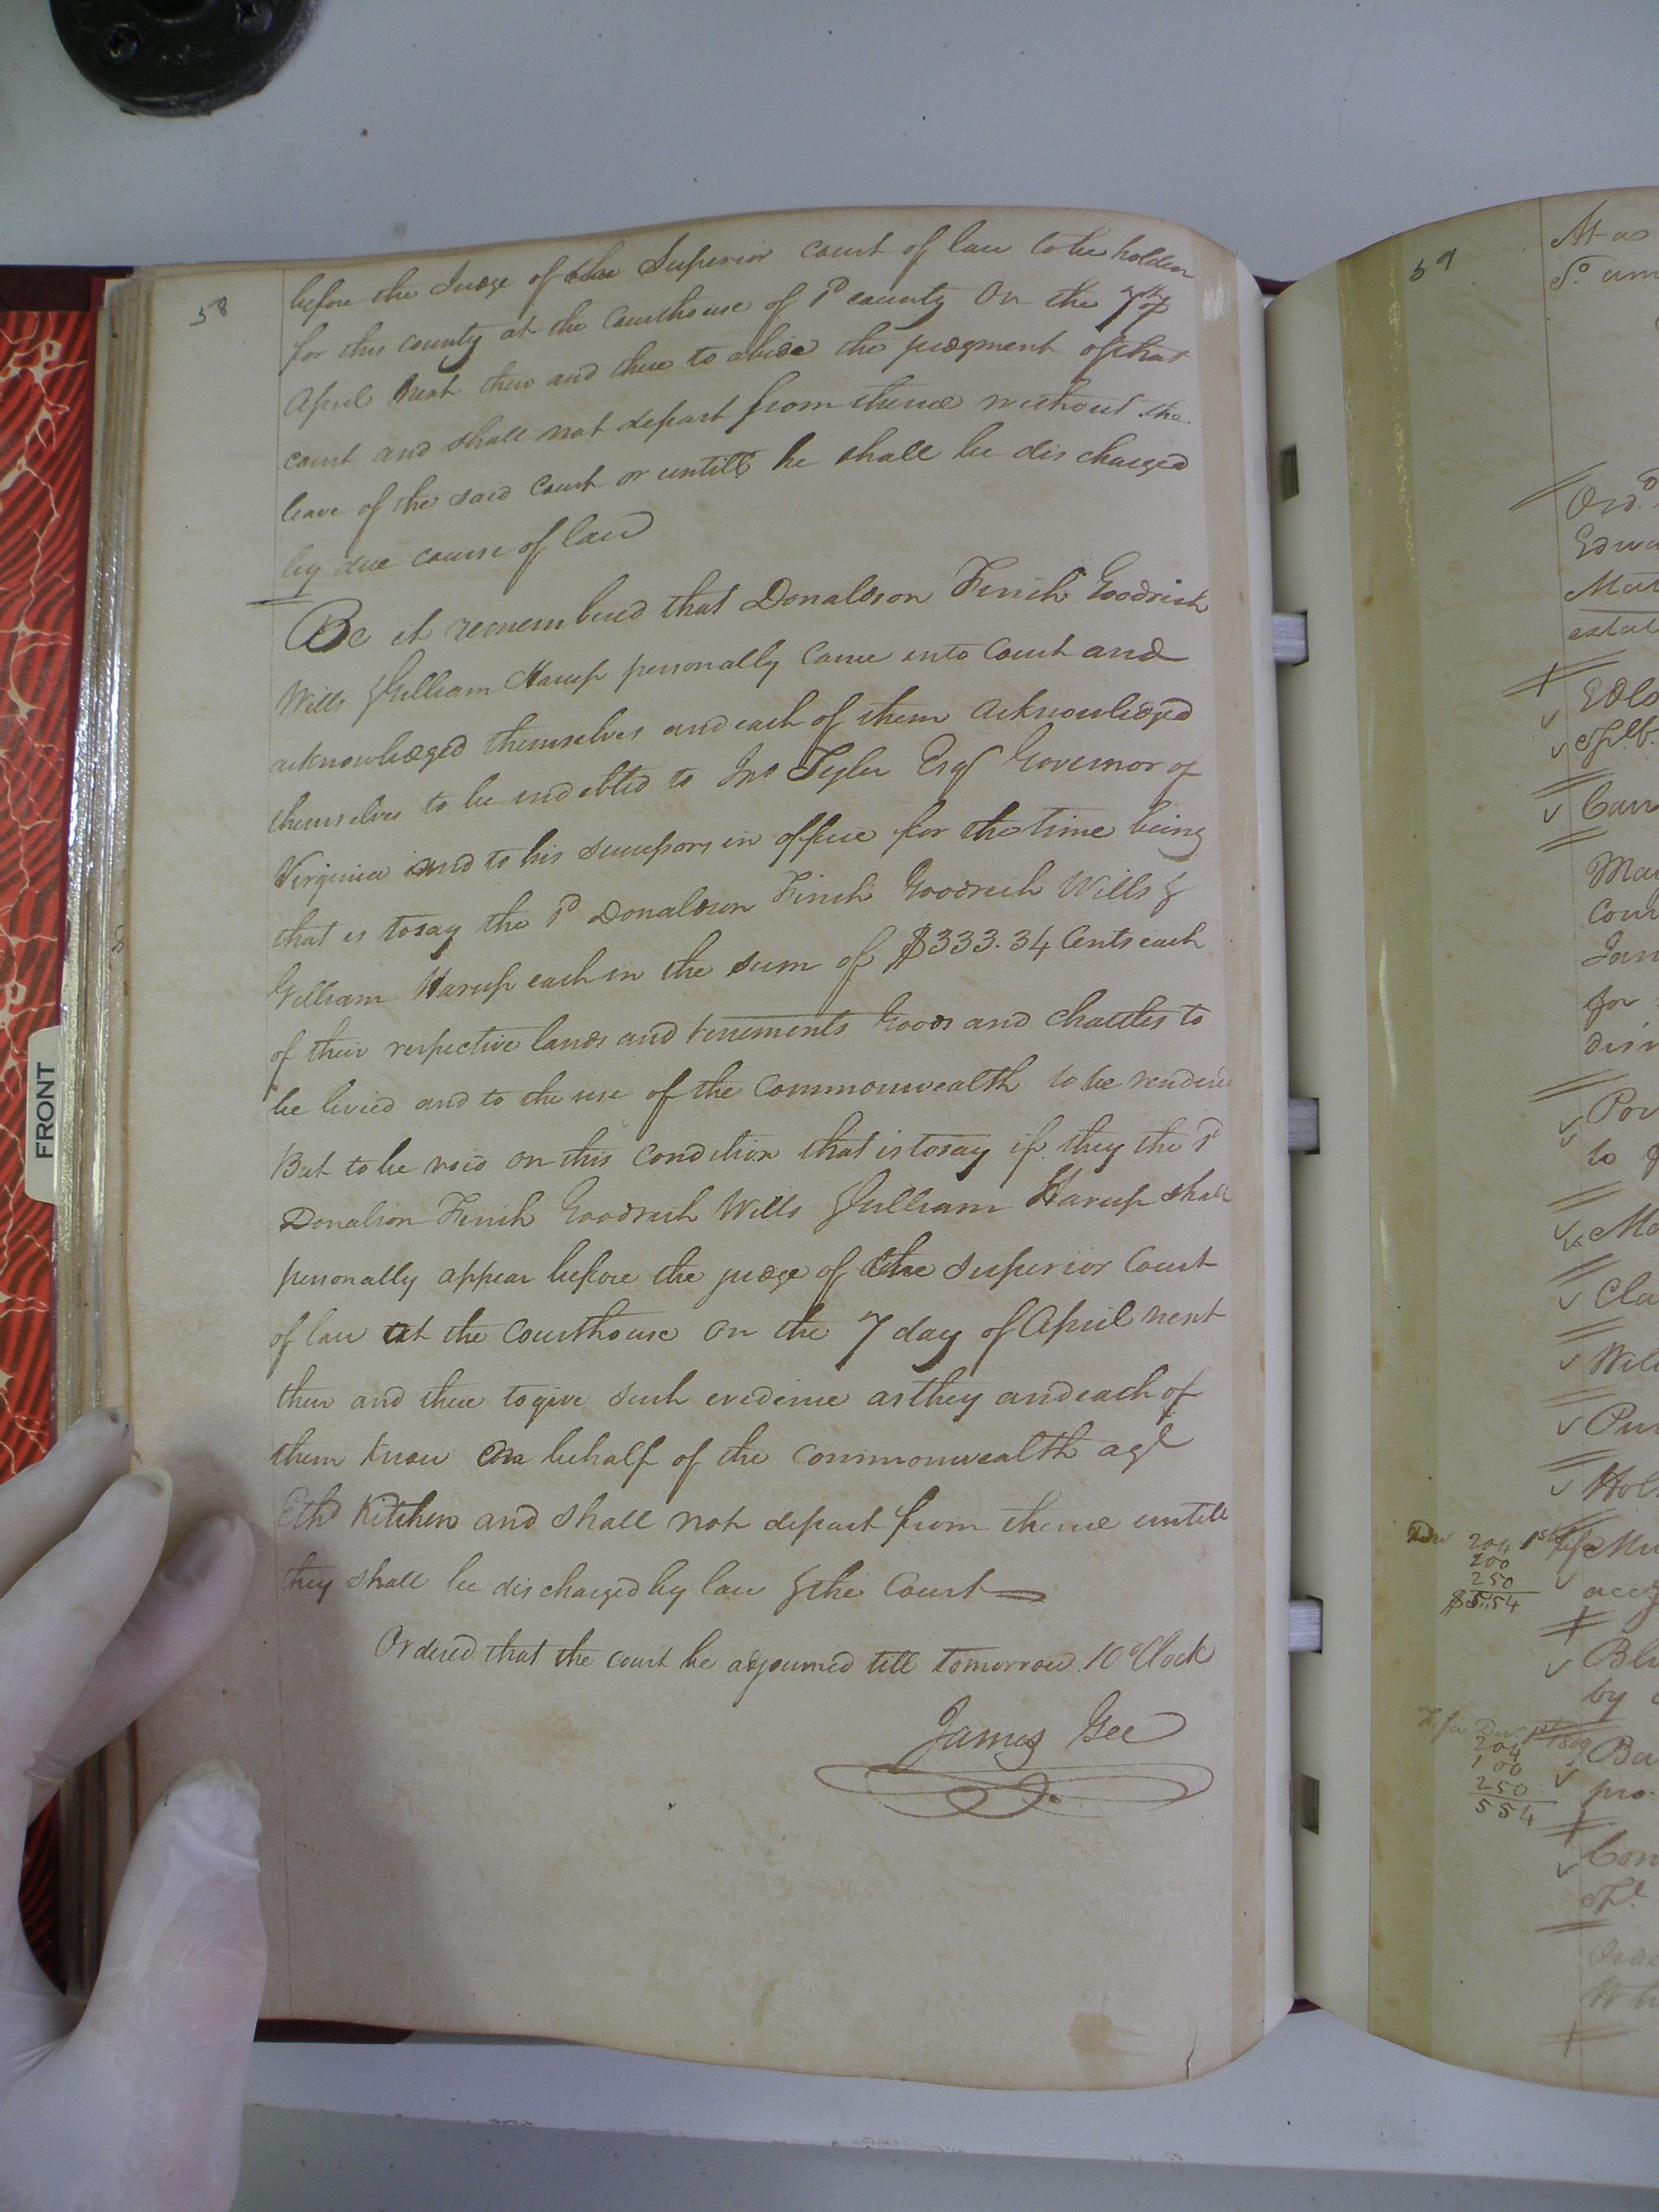 58
before the Judge of the Superior court of law to be holden
for this county at the Courthouse of Sd county On the 7th of
April next then and there to abide the judgment of that
court and shall not depart from thence without the
leave of the said Court or untill he shall be discharged
by due course of law
Be it remembered that Donaldson Finch Goodrich
Wills & William Harup personally came into Court and
acknowledged themselves and each of them acknowledged
themselves to be indebted to Jno Tyler Esqr Governor of
Virginia and to his successors in office for the time being
that is to say the Sd Donaldson Finch Goodrich Wills &
William Harup each in the sum of $333.34 Cents each
of their respective lands and tenements Goods and chattles to
be levied and to the use of the Commonwealth to be rendered
But to be void on this Condition that is to say if they the Sd
Donalson Finch Goodrich Wills & William Harup shall
personally appear before the judge of the Superior Court
of law at the Courthouse on the 7 day of April next
then and there to give such evidence as they and each of
them know on behalf of the Commonwealth agt
Ethd Kitchen and shall not depart from thence untill
they shall be discharged by law & the Court
Ordered that the court be adjourned till tomorrow 10 oClock
James Gee
FRONT
59
At a
Sd
Ord.
Edwa
Mat
estat
Edlo
Splb.
Carr
Mau
Cour
Jan
for
dis
Por
to
Mo
Cla
Will
Pur
Hol
204
100
250
$554
acc
Bl
by
204
100
250
554
Ba
pro:
Con
Orde
Wh